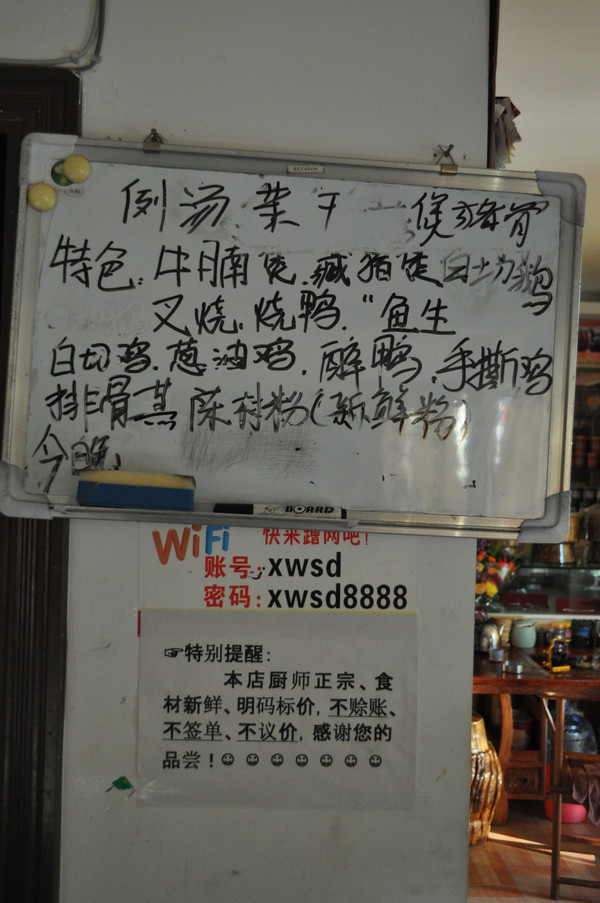 例汤.菜干一煲猪骨
特色:牛腩煲.藏猪煲白切鹅
叉烧.烧鸭."鱼生
白切鸡.葱油鸡.醉鸭.手撕鸡
排骨蒸陈村粉(新鲜粉)
今晚.
BOARD
WiFi 快来蹭网吧!
账号:xwsd
密码:xwsd8888
☞特别提醒:
本店厨师正宗、食
材新鲜、明码标价,不赊账、
不签单、不议价,感谢您的
品尝!☺☺☺☺☺☺☺